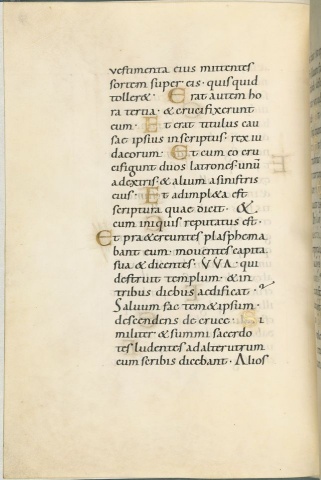 vestimenta eius mittentes
sortem super eis · quisquid
toller& · Erat autem ho
ra tertia · & crucifixerunt
eum · Et erat titulus cau
sae ipsius inscriptus · rex iu
daeorum · Et cum eo cru
cifigunt duos latrones · unū
adextris & alium asinistris
eius · Et adimpl&a est
scriptura quae dicit · &
cum iniquis reputatus est ·
Et pra&ereuntes plasphema
bant eum · mouentes capita
sua & dicentes · VVA · qui
destruit templum · & in
tribus diebus aedificat ·
Saluum fac tem&ipsum ·
descendens de cruce · Si
militer & summi sacerdo
tes ludentes adalterutrum
cum scribis dicebant · Alios